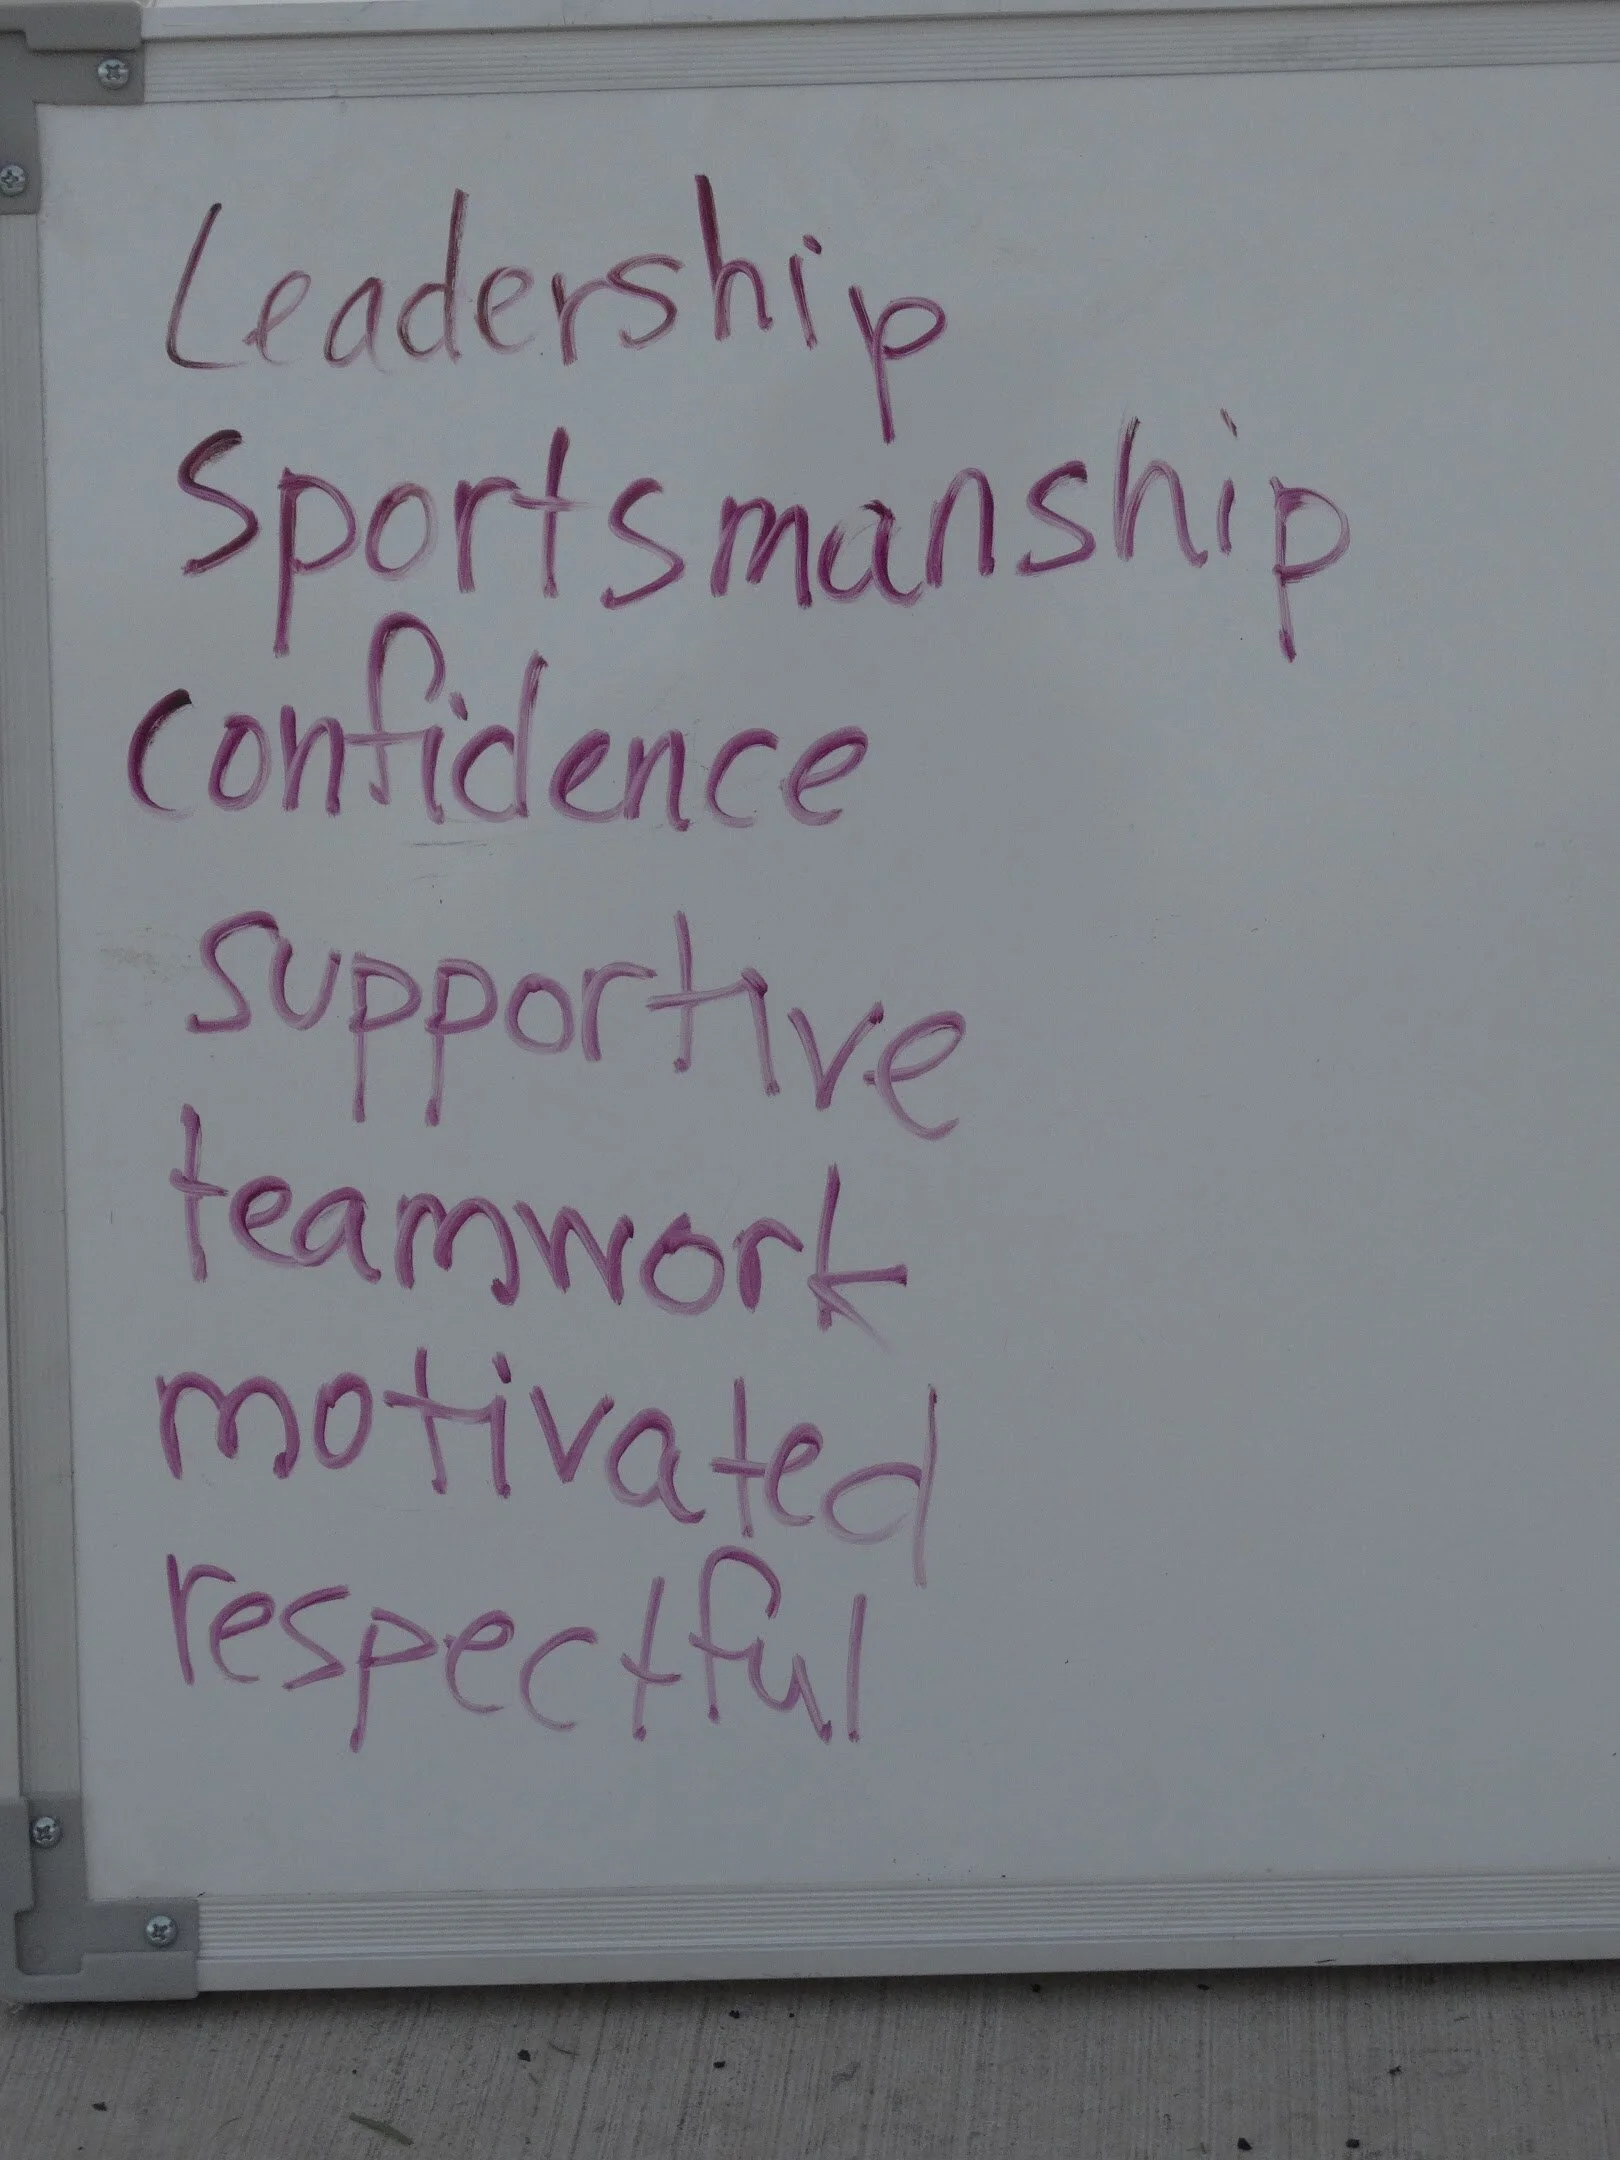 Leadership
Sportsmanship
confidence
supportive
teamwork
motivated
respectful